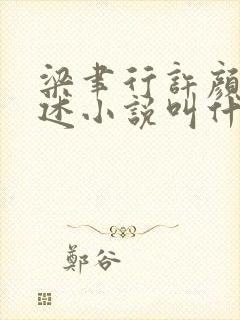 梁聿行許顏
述小說叫什
鄭谷